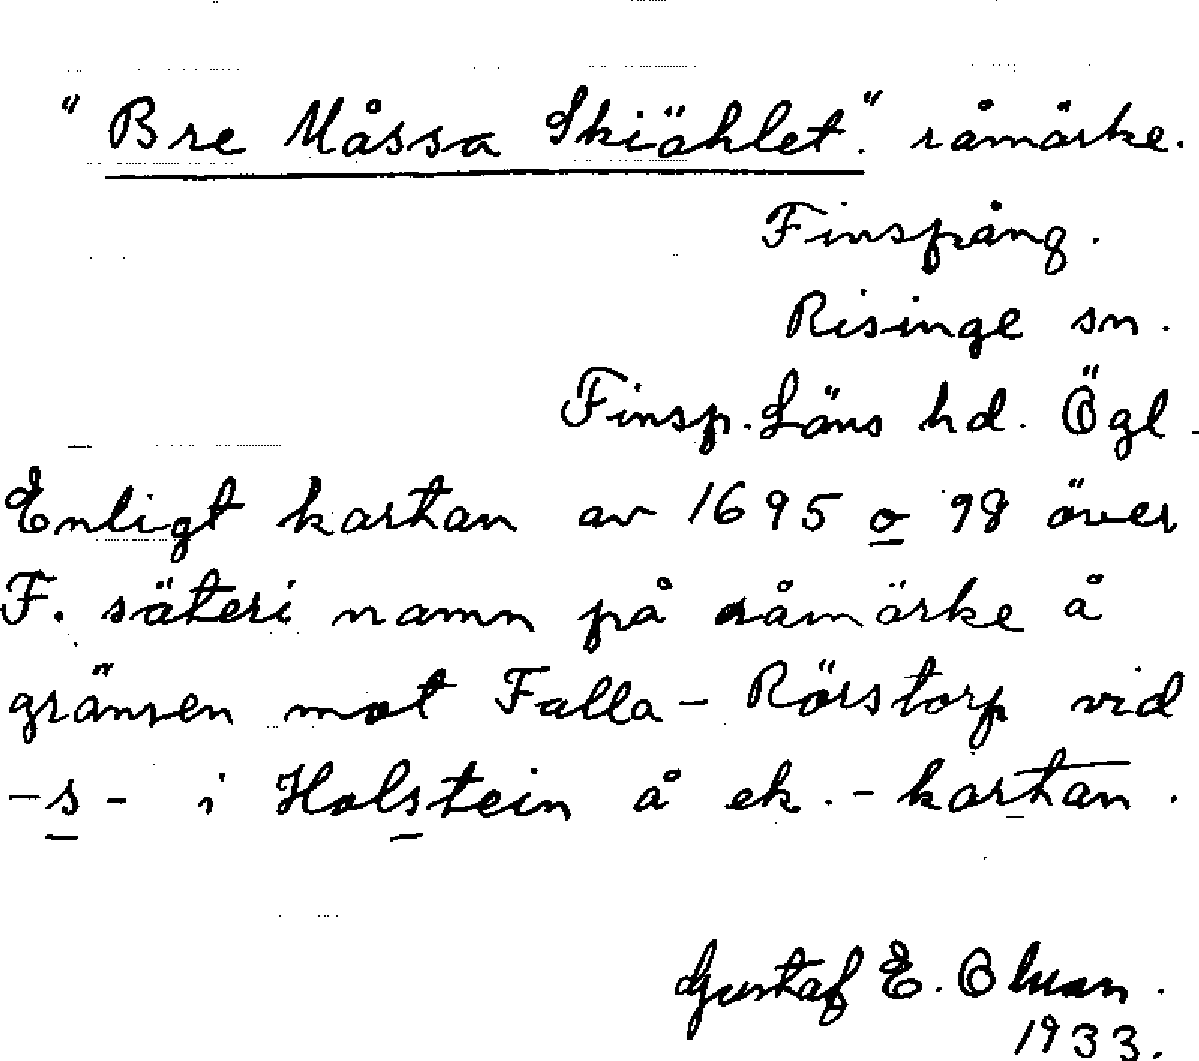 "Bre Måssa Skiählet." råmärke.
Finspång.
Risinge sn.
Finsp. Läns hd. Ögl.
Enligt kartan av 1695 o 98 över
F. säteri namn på råmärke å
gränsen mot Falla - Rörstorp vid
-s- i Holstein å ek.-kartan.
Gustaf E. Olsson.
1933.